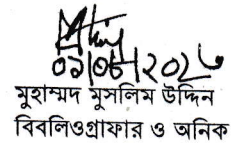 ০১|০৮|২০২৬
মুহাম্মদ মুসলিম উদ্দিন
বিবলিওগ্রাফার ও অনিক